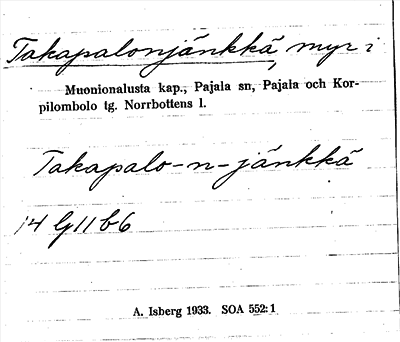 Takapalonjänkkä, myr i
Muonionalusta kap., Pajala sn, Pajala och Kor-
pilombolo tg. Norrbottens l.
Takapalo-n-jänkkä
14 G11 b6
A. Isberg 1933. SOA 552:1